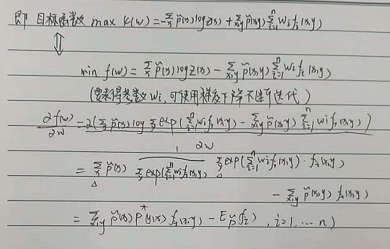 即 目标函数 max ψ(w) = -Σₓ p̃(x) log Z(x) + Σₓ,ᵧ p̃(x,y) Σᵢ₌₁ⁿ wᵢ fᵢ(x,y)
⇕
min f(w) = Σₓ p̃(x) log Z(x) - Σₓ,ᵧ p̃(x,y) Σᵢ₌₁ⁿ wᵢ fᵢ(x,y)
(要求得参数 wᵢ, 可使用梯度下降不断迭代)
∂f(w)/∂w = ∂(Σₓ p̃(x) log Σᵧ exp(Σᵢ₌₁ⁿ wᵢ fᵢ(x,y)) - Σₓ,ᵧ p̃(x,y) Σᵢ₌₁ⁿ wᵢ fᵢ(x,y)) / ∂w
= Σₓ p̃(x) 1/Σᵧ exp(Σᵢ₌₁ⁿ wᵢ fᵢ(x,y)) Σᵧ exp(Σᵢ₌₁ⁿ wᵢ fᵢ(x,y)) · fᵢ(x,y)
- Σₓ,ᵧ p̃(x,y) fᵢ(x,y)
= Σₓ,ᵧ p̃(x) p*(y|x) fᵢ(x,y) - E_p̃(fᵢ), i=1, ... n)